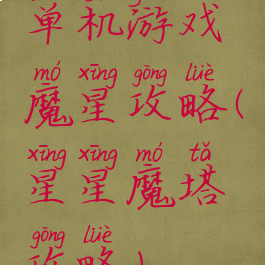 单机游戏
mó xīng gōng lüè
魔星攻略(
xīng xīng mó tǎ
星星魔塔
gōng lüè
攻略)